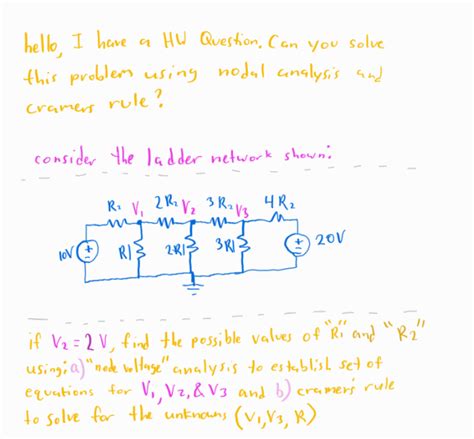 hello, I have a HW Question. Can you solve
this problem using nodal analysis and
cramers rule?
consider the ladder network shown:
R2 V1 2R2 V2 3R2 V3 4R2
10V + R1 2R1 3R1 + 20V
if V2 = 2 V, find the possible values of "R1" and "R2"
using: a) "node voltage" analysis to establish set of
equations for V1, V2, & V3 and b) cramer's rule
to solve for the unknowns (V1, V3, R)